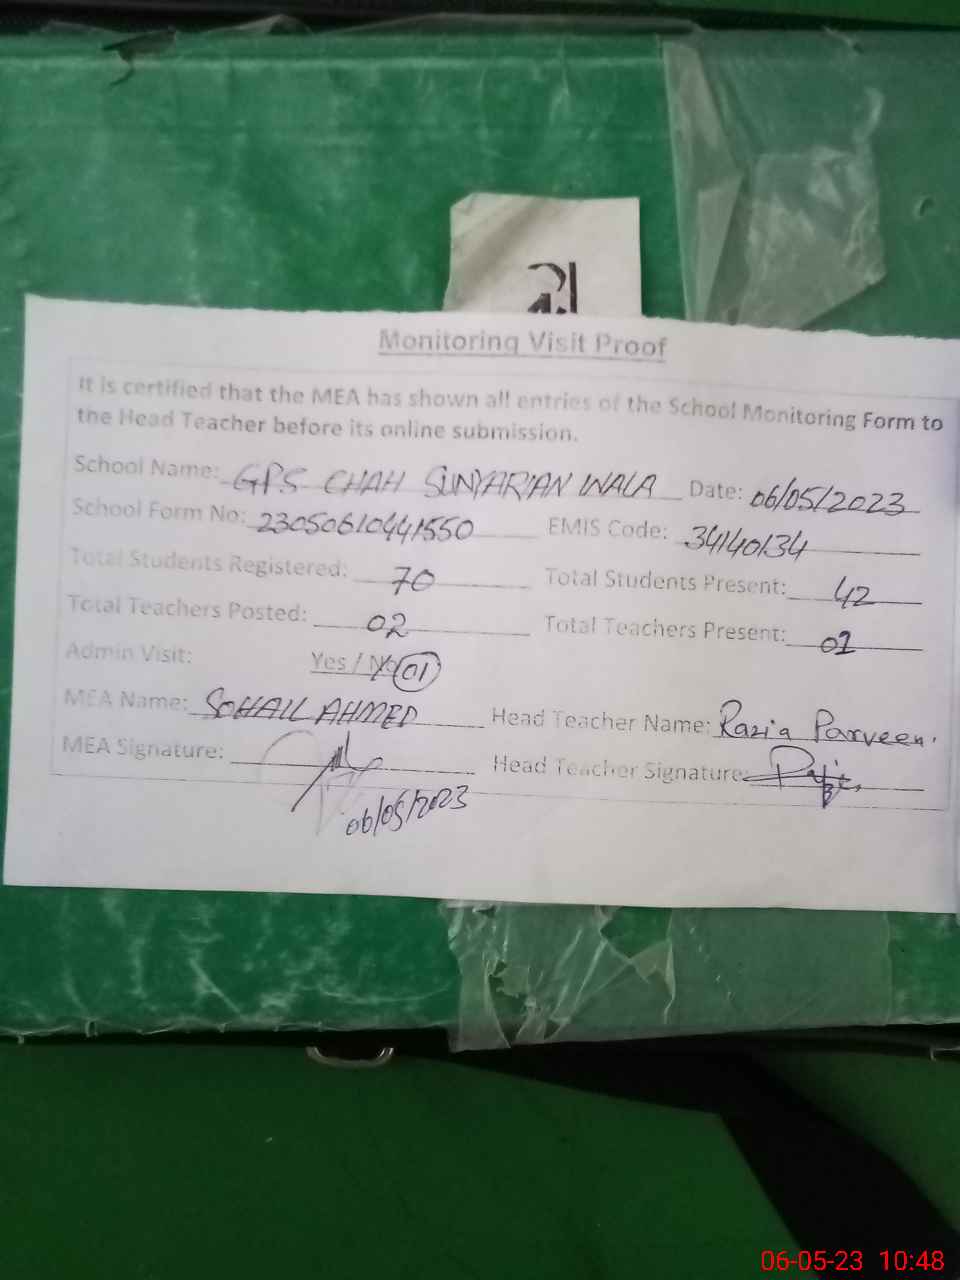 Monitoring Visit Proof
It is certified that the MEA has shown all entries of the School Monitoring Form to
the Head Teacher before its online submission.
School Name: GPS CHAH SUNYARIAN WALA Date: 06/05/2023
School Form No: 23050610441550 EMIS Code: 34140134
Total Students Registered: 70 Total Students Present: 42
Total Teachers Posted: 02 Total Teachers Present: 01
Admin Visit: Yes / No 01
MEA Name: SOHAIL AHMED Head Teacher Name: Razia Parveen.
MEA Signature: Head Teacher Signature:
06/05/2023
06-05-23 10:48